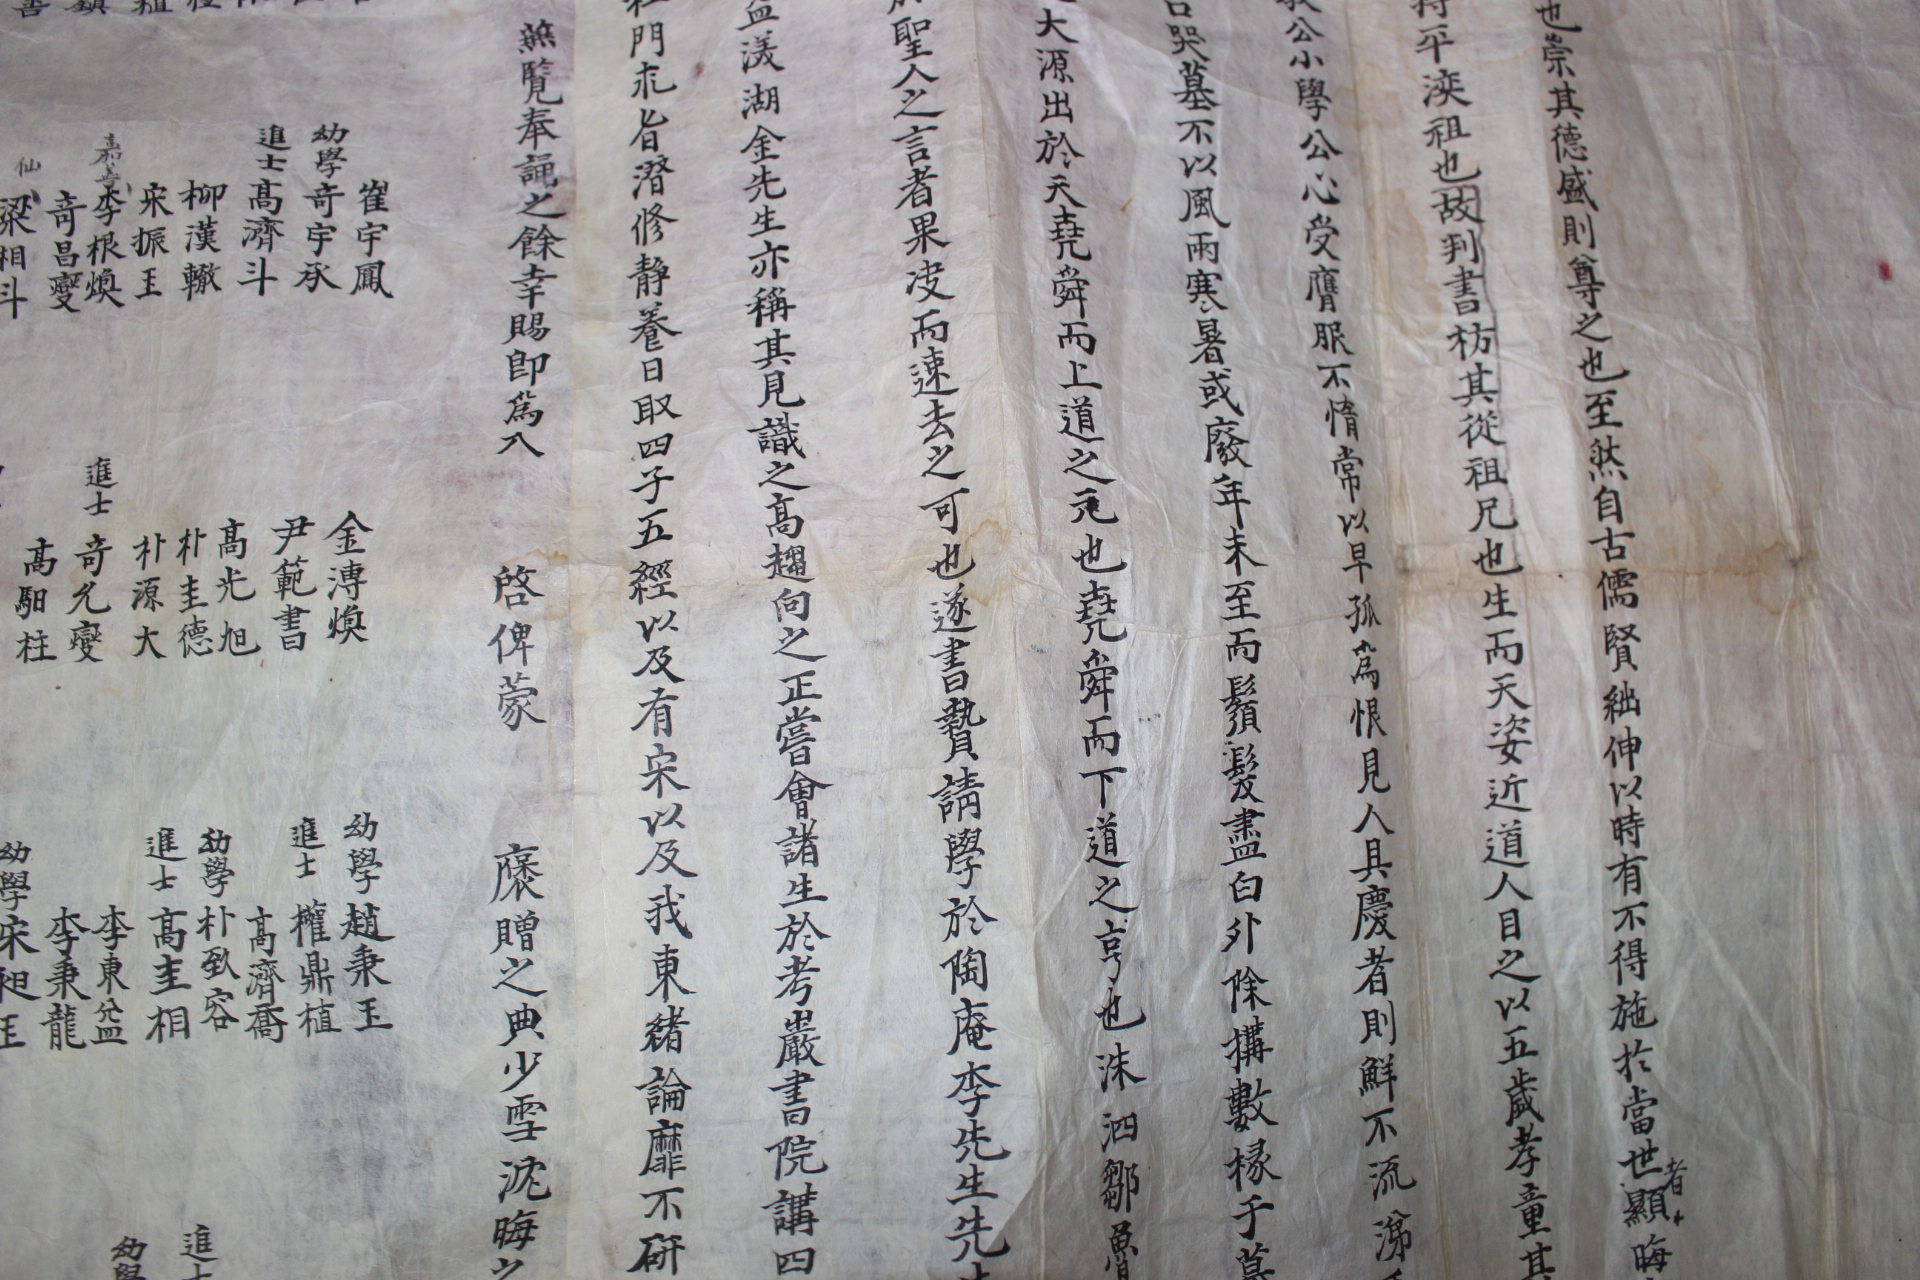 也崇其德盛則尊之也至然自古儒賢絀伸以時有不得施於當世者顯晦
持平渶祖也故判書枋其從祖兄也生而天姿近道人目之以五歲孝童其
公小學公心受膺服不惰常以早孤爲恨見人具慶者則鮮不流涕
哭墓不以風雨寒暑或廢年未至而鬚髮盡白外除搆數椽于墓
大源出於天堯舜而上道之元也堯舜而下道之亨也洙泗鄒魯
聖人之言者果決而速去之可也遂書贄請學於陶庵李先生先
益渼湖金先生亦稱其見識之高趨向之正嘗會諸生於考巖書院講四
杜門求旨潛修靜養日取四子五經以及有宋以及我東緖論靡不硏
無覽奉誦之餘幸賜卽爲入
啓俾蒙
褒贈之典少雪沈晦之
崔宇鳳
幼學 奇宇承
進士 高濟斗
柳漢轍
宋振玉
嘉善 李根煥
奇昌燮
仙 梁相斗
金溥煥
尹範書
高光旭
朴圭德
朴源大
進士 奇允燮
高馹柱
幼學 趙秉玉
進士 權鼎植
高濟喬
幼學 朴致容
進士 高圭相
李東益
李秉龍
幼學 宋
進士
幼學